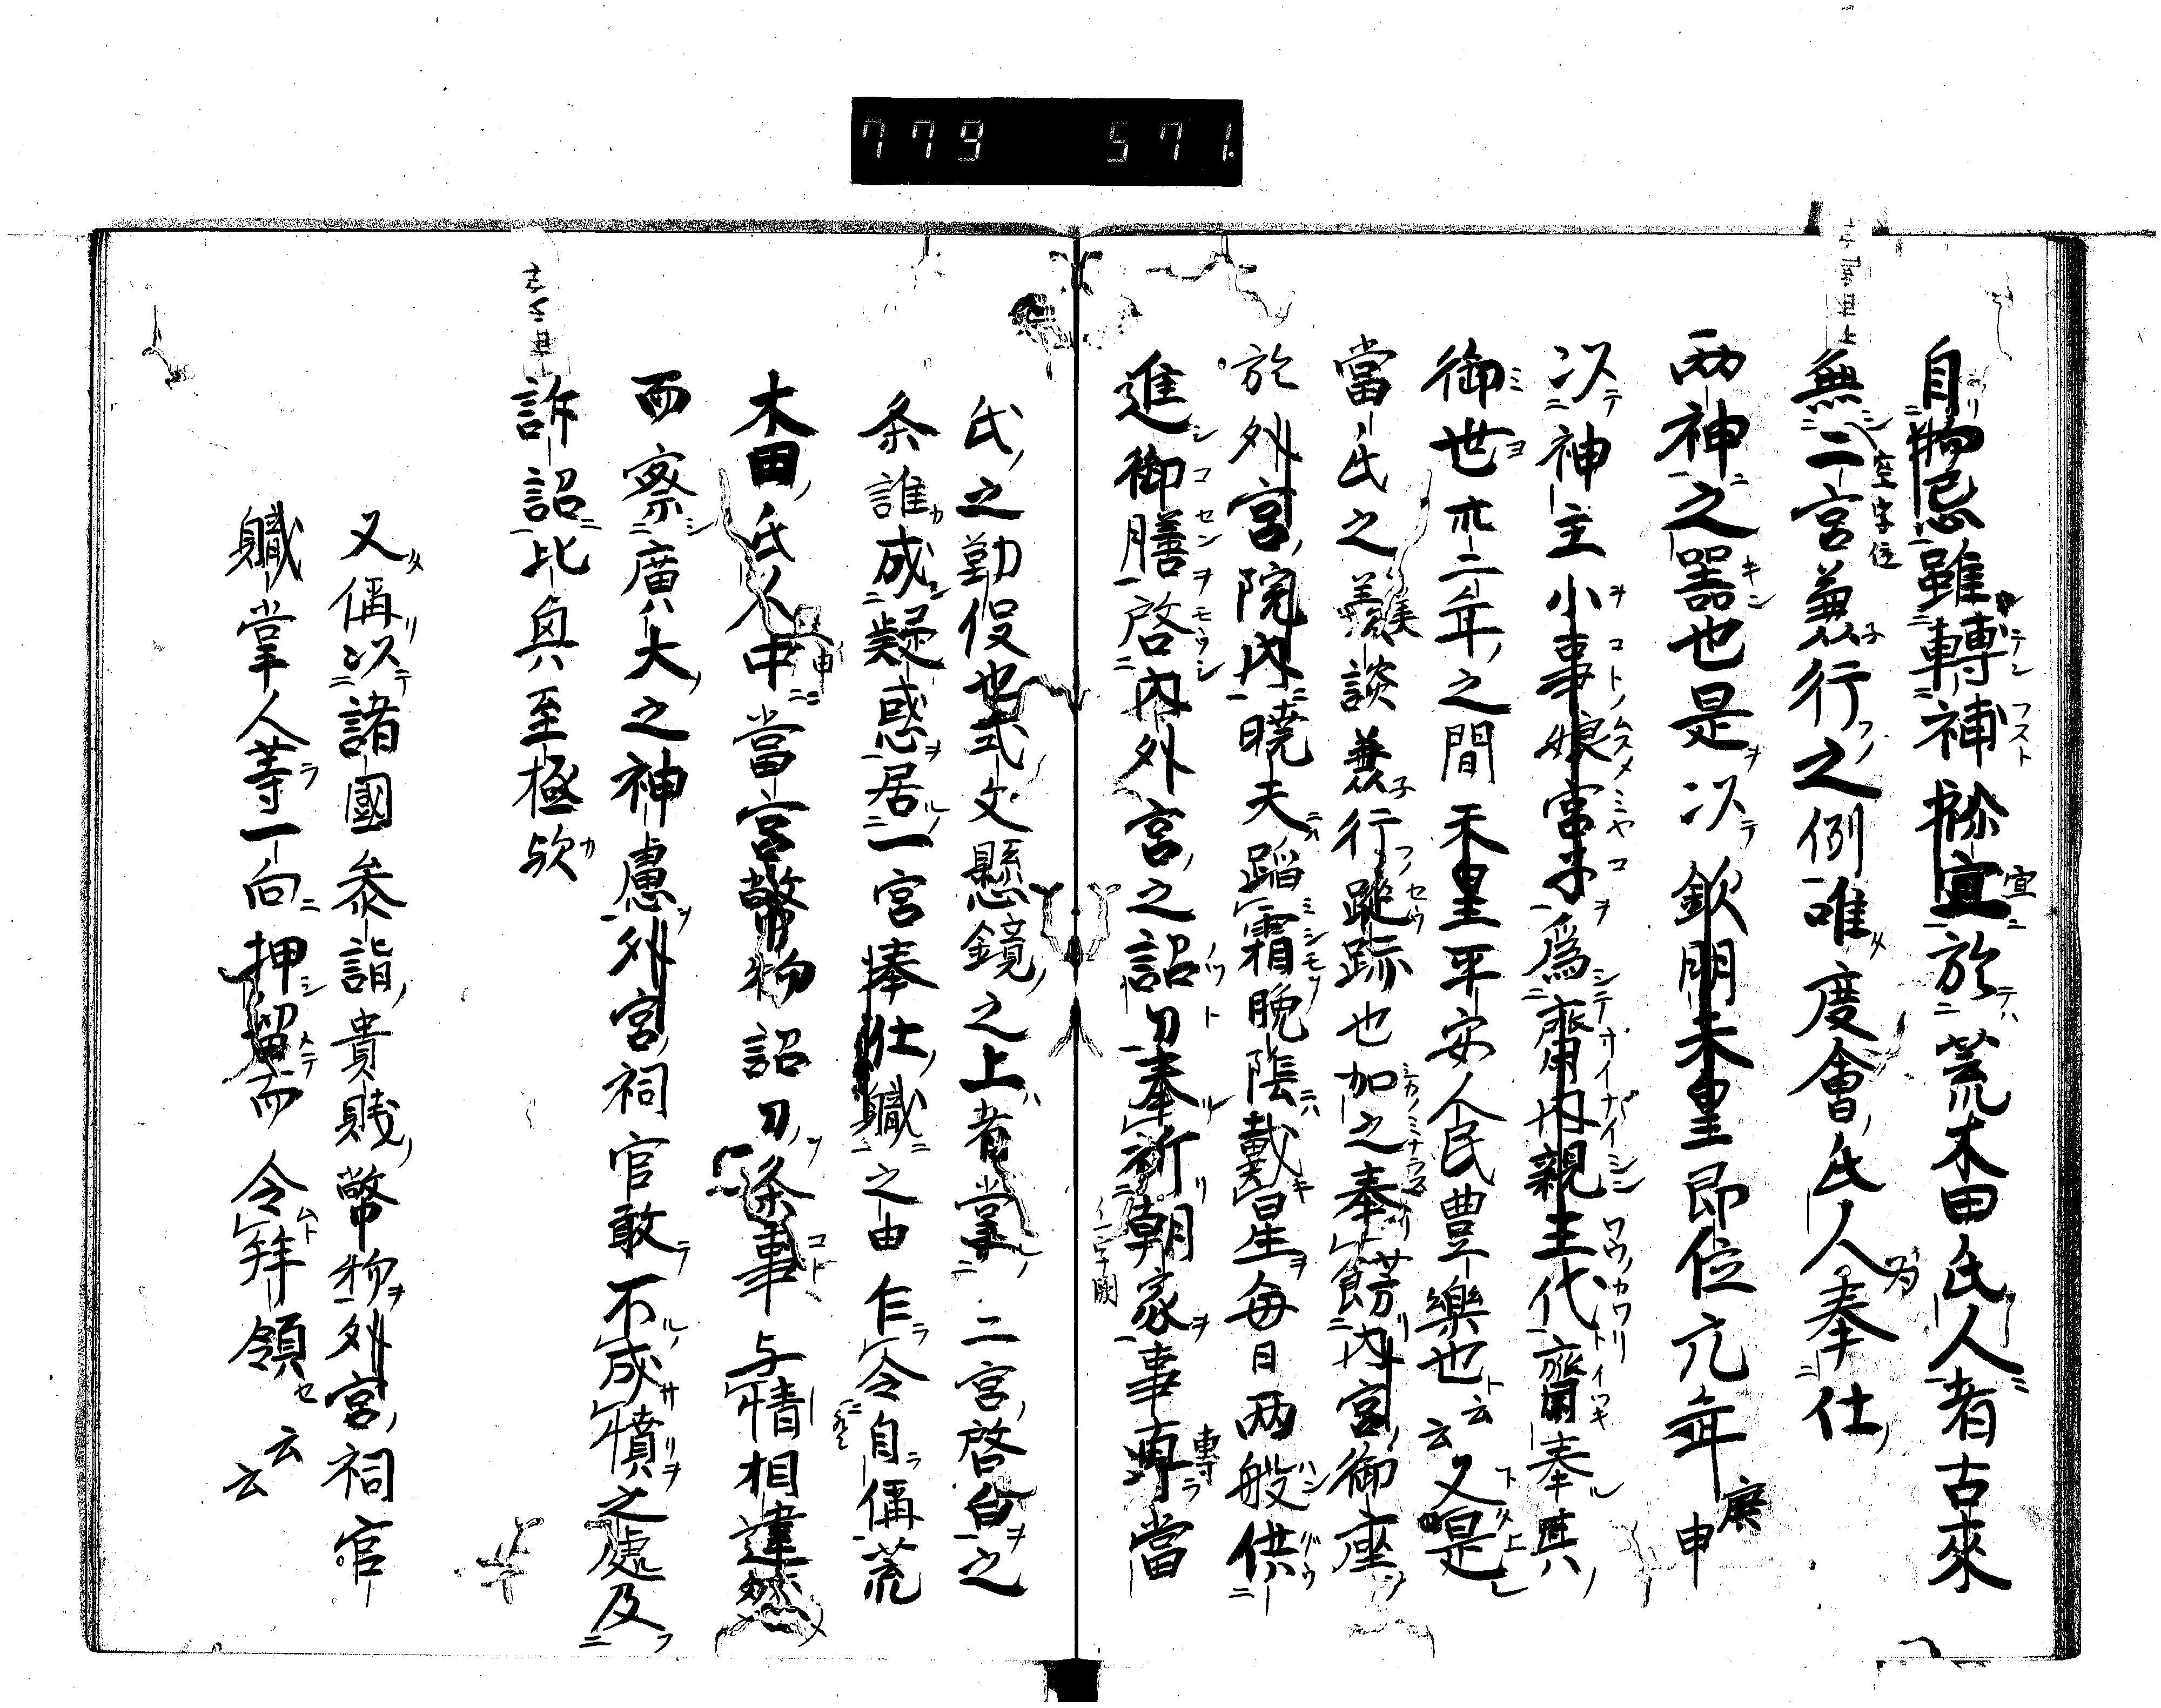 779 571.
自物忌雖轉補祢宜於荒木田氏人者古來
無二宮兼行之例唯度會氏人奉仕
兩神之器也是以欽明天皇即位元年庚申
以神主小事娘常子爲齋内親王代齋奉其
御世卅二年之間天皇平安人民豊樂也云云又是
當氏之美談兼行蹤跡也加之奉餝内宮御座
於外宮院内曉天蹈霜晩陰戴星毎日兩般供
進御膳啓内外宮之詔刀奉祈朝家事専當
氏之勤役也式文懸鏡之上者掌二宮啓白之
条誰成疑惑居一宮捧仕職之由乍令自偁荒
木田氏人申當宮幣物詔刀条事与情相違然
而察廣大之神慮外宮祠官敢不成憤之處及
訴詔比興至極欤
又偁以諸國叅詣貴賤幣物外宮祠官
職掌人等一向押留而令拜領云云